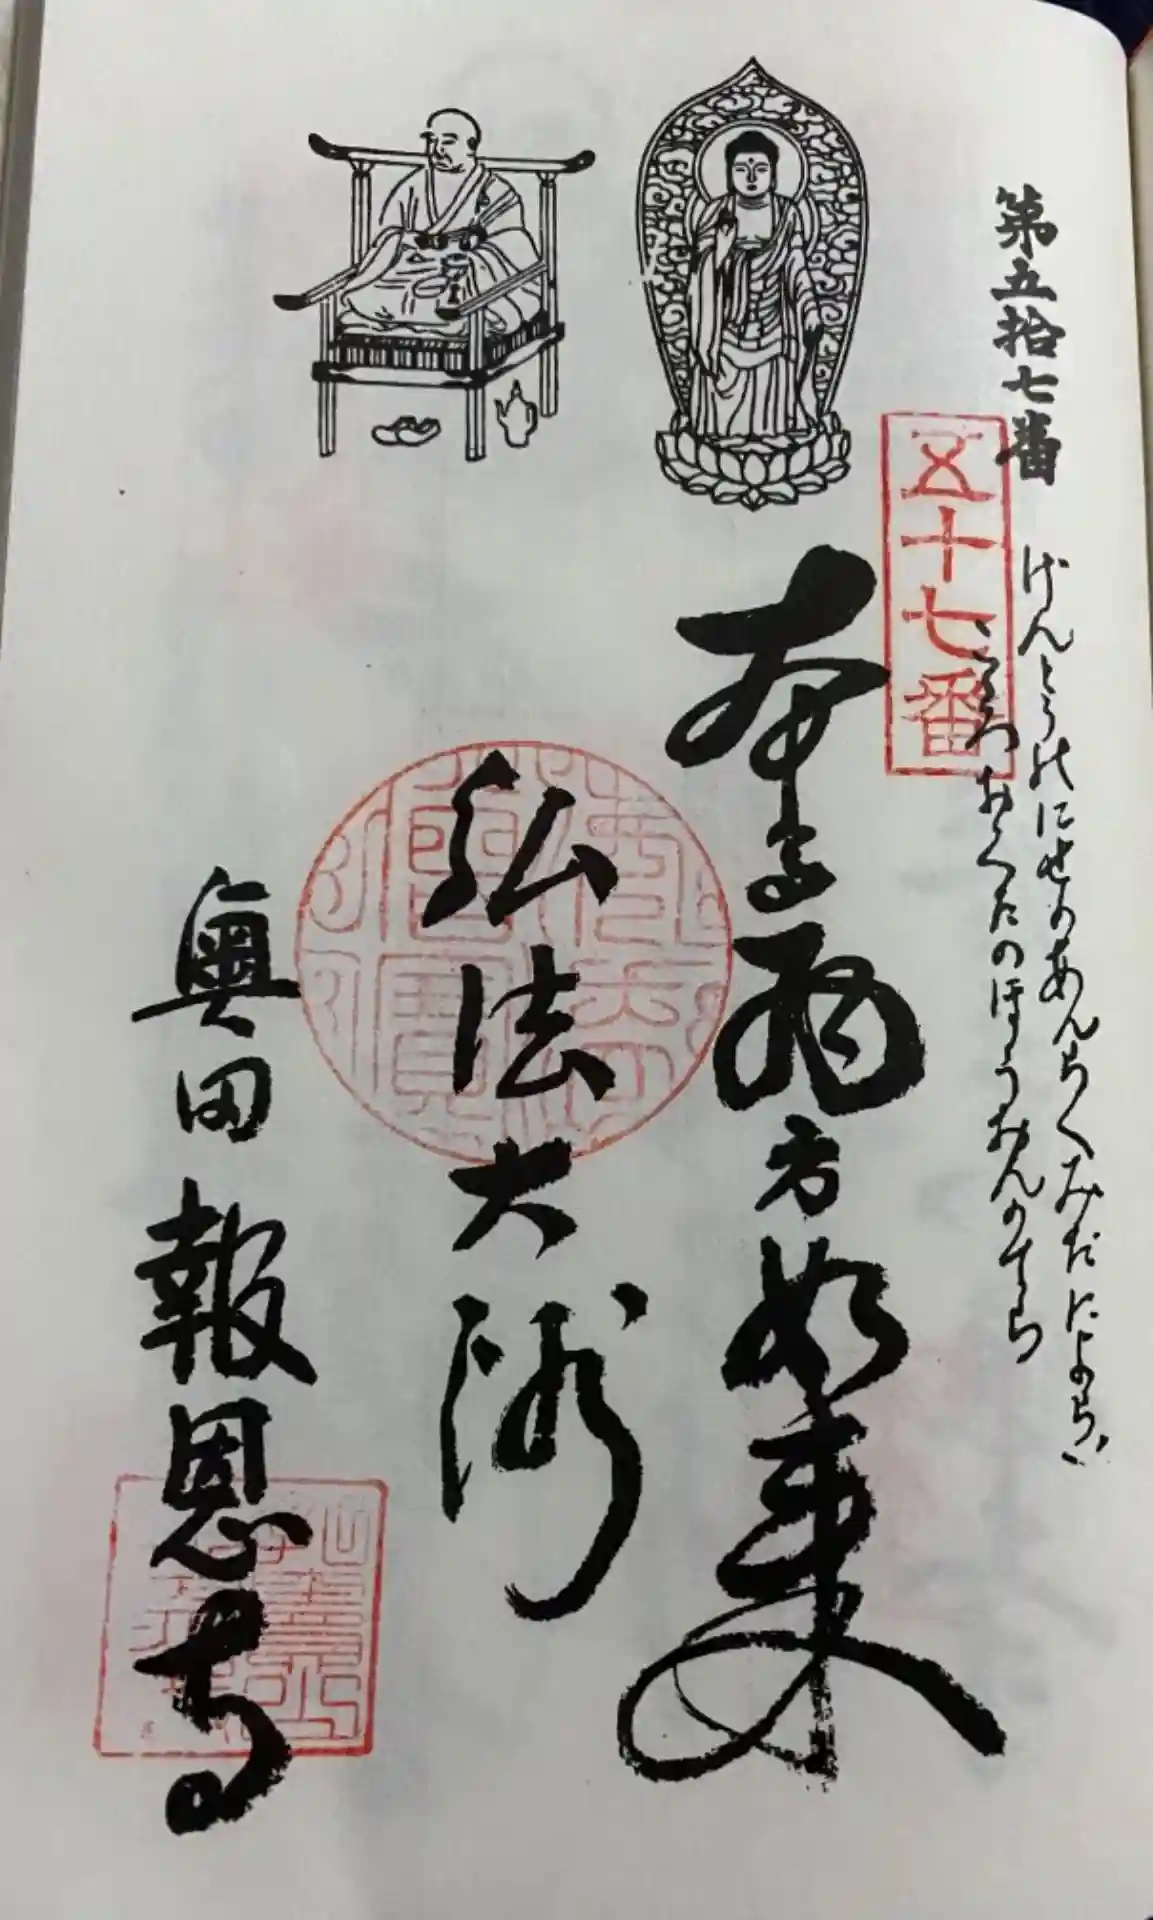 第五拾七番
五十七番
げんとうのにせのあんらくみだによらい
こゝろおくたのほうおんのてら
本尊西方如来
弘法大師
奥田報恩寺